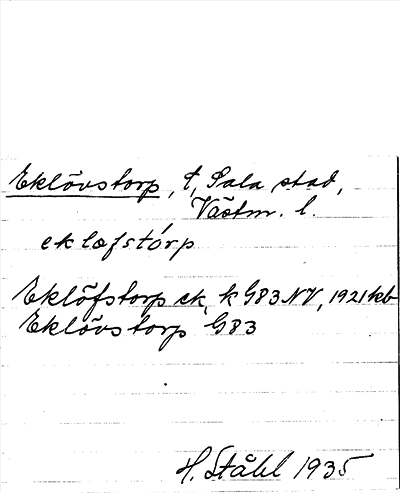 Eklövstorp, t, Sala stad,
Västm. l.
eklœfstórp
Eklöfstorp ek, k G83 NV, 1921 hkb
Eklövstorp G83
H. Ståhl 1935